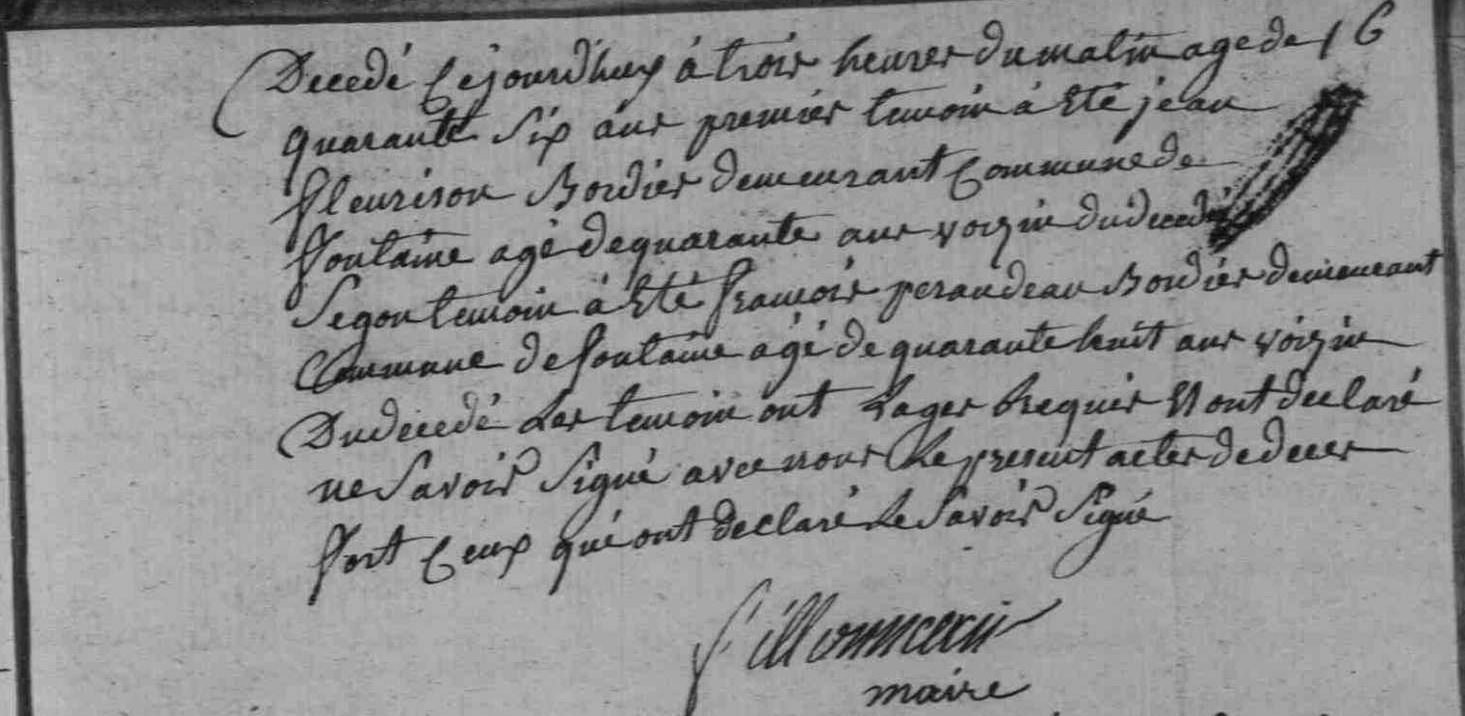 Decedé Cejourd'huy à trois heures du matin age de 16
quarante six ans premier temoin à Eté jean
fleurison Bordier demeurant Commune de
fontaine agé de quarante ans voizin du decedé
Segon temoin à Eté francois peraudeau Bordier demeurant
Commune de fontaine agé de quarante huit ans voizin
Du decedé Les temoin ont Requis ont declaré
ne Savoir Signé avec nous Le present actes de deces
fort Ceux qui ont declaré Le Savoir Signé
maire